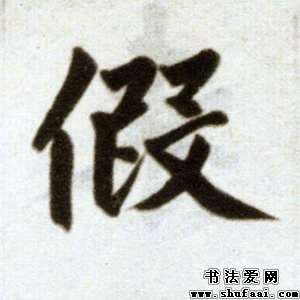 假
书法爱网
www.shufaai.com